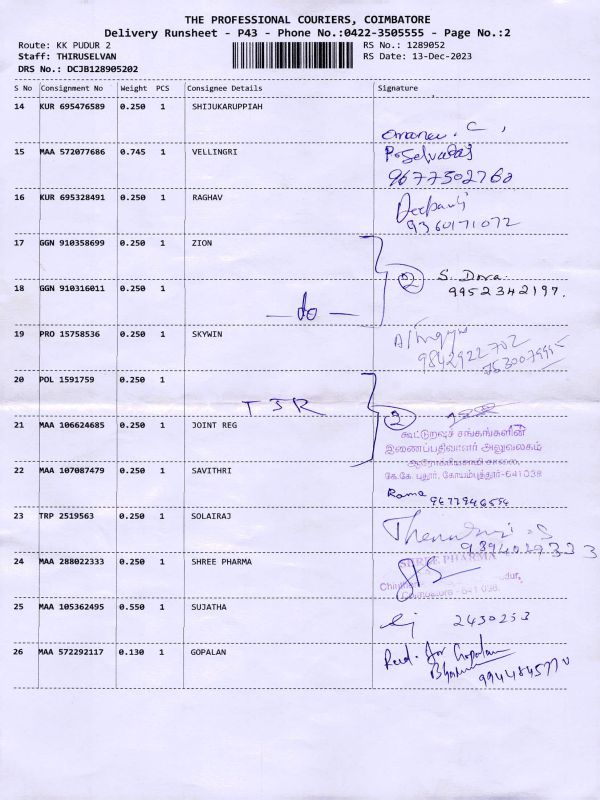 THE PROFESSIONAL COURIERS, COIMBATORE
Delivery Runsheet - P43 - Phone No.:0422-3505555 - Page No.:2
Route: KK PUDUR 2 RS No.: 1289052
Staff: THIRUSELVAN RS Date: 13-Dec-2023
DRS No.: DCJB128905202
S No Consignment No Weight PCS Consignee Details Signature
14 KUR 695476589 0.250 1 SHIJUKARUPPIAH
15 MAA 572077686 0.745 1 VELLINGRI P.Selvaraj
9677502760
16 KUR 695328491 0.250 1 RAGHAV
9360171072
17 GGN 910358699 0.250 1 ZION
2 S. Dora.
18 GGN 910316011 0.250 1 9952342197.
do
19 PRO 15758536 0.250 1 SKYWIN
9842922702
7530079995
20 POL 1591759 0.250 1
TJR
2
21 MAA 106624685 0.250 1 JOINT REG
கூட்டுறவுச் சங்கங்களின்
இணைப்பதிவாளர் அலுவலகம்
ஆரோக்கியசாமி சாலை,
கே.கே. புதூர், கோயம்புத்தூர்-641038
22 MAA 107087479 0.250 1 SAVITHRI Rama
23 TRP 2519563 0.250 1 SOLAIRAJ
24 MAA 288022333 0.250 1 SHREE PHARMA SHREE PHARMA
Coimbatore - 641 038.
25 MAA 105362495 0.550 1 SUJATHA 2430253
26 MAA 572292117 0.130 1 GOPALAN Recd. for Gopalan